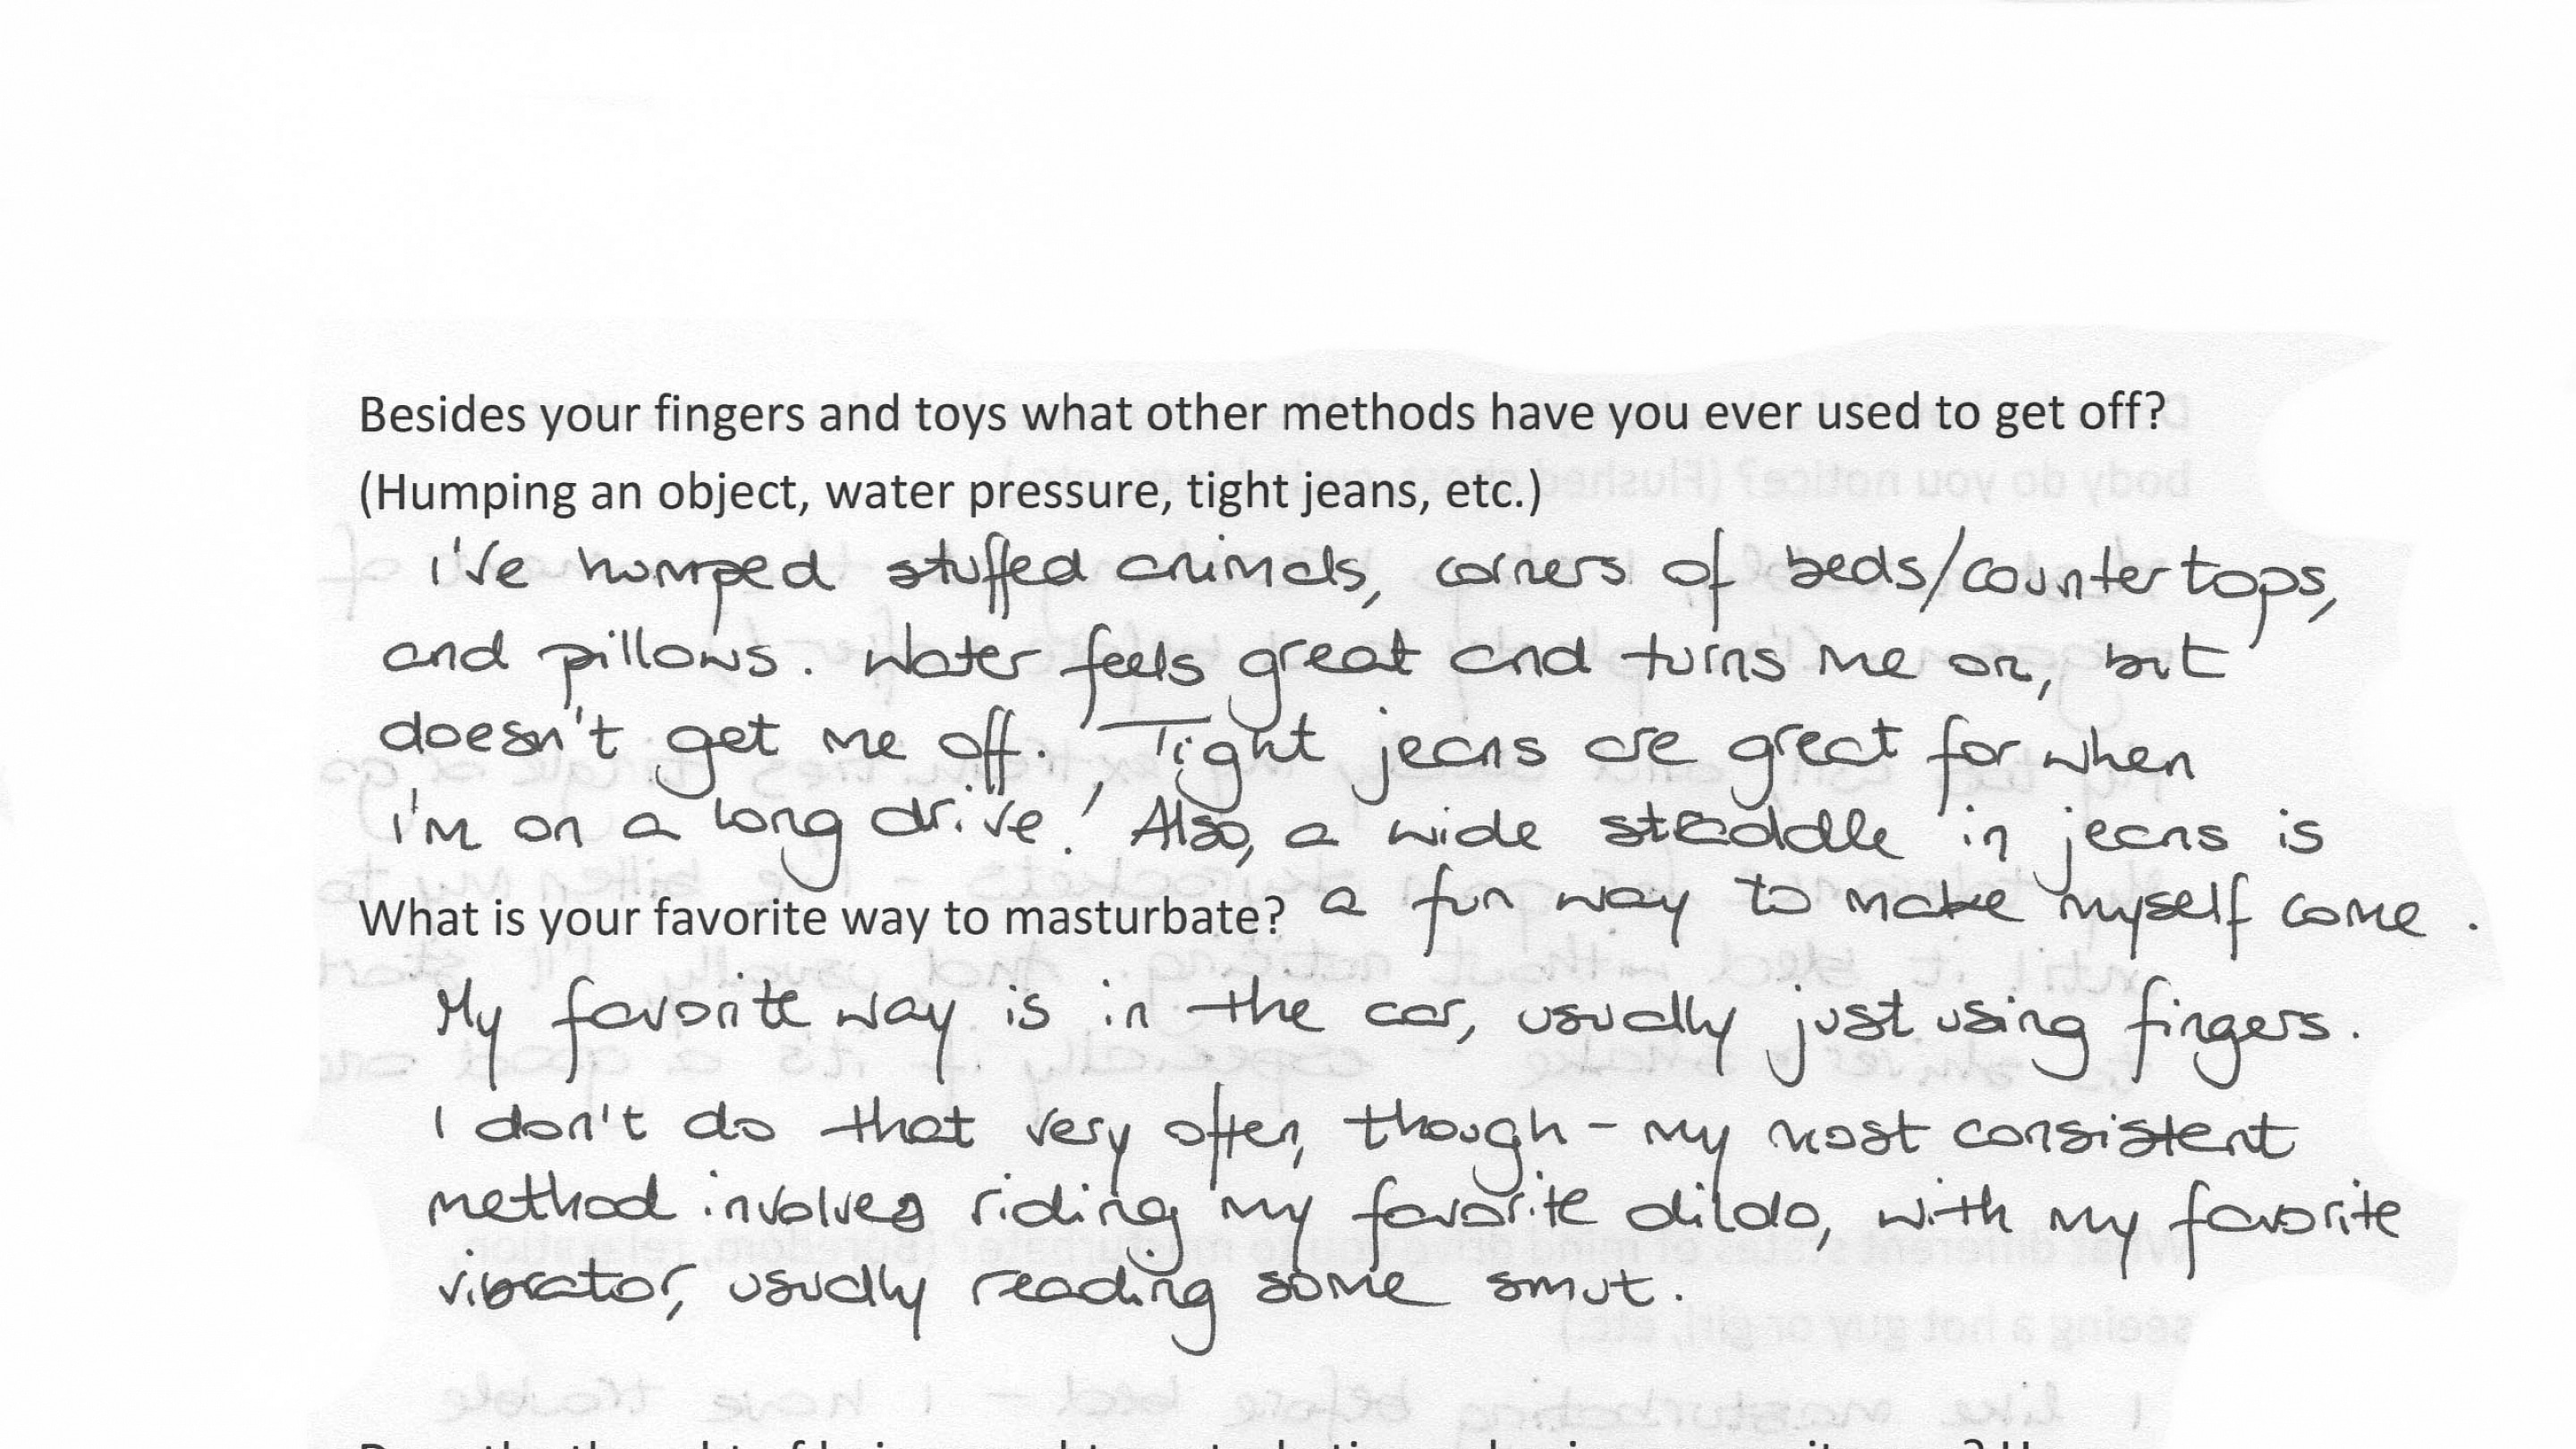 Besides your fingers and toys what other methods have you ever used to get off?
(Humping an object, water pressure, tight jeans, etc.)
I've humped stuffed animals, corners of beds/countertops,
and pillows. Water feels great and turns me on, but
doesn't get me off. Tight jeans are great for when
I'm on a long drive! Also, a wide straddle in jeans is
a fun way to make myself come.
What is your favorite way to masturbate?
My favorite way is in the car, usually just using fingers.
I don't do that very often, though - my most consistent
method involves riding my favorite dildo, with my favorite
vibrator, usually reading some smut.